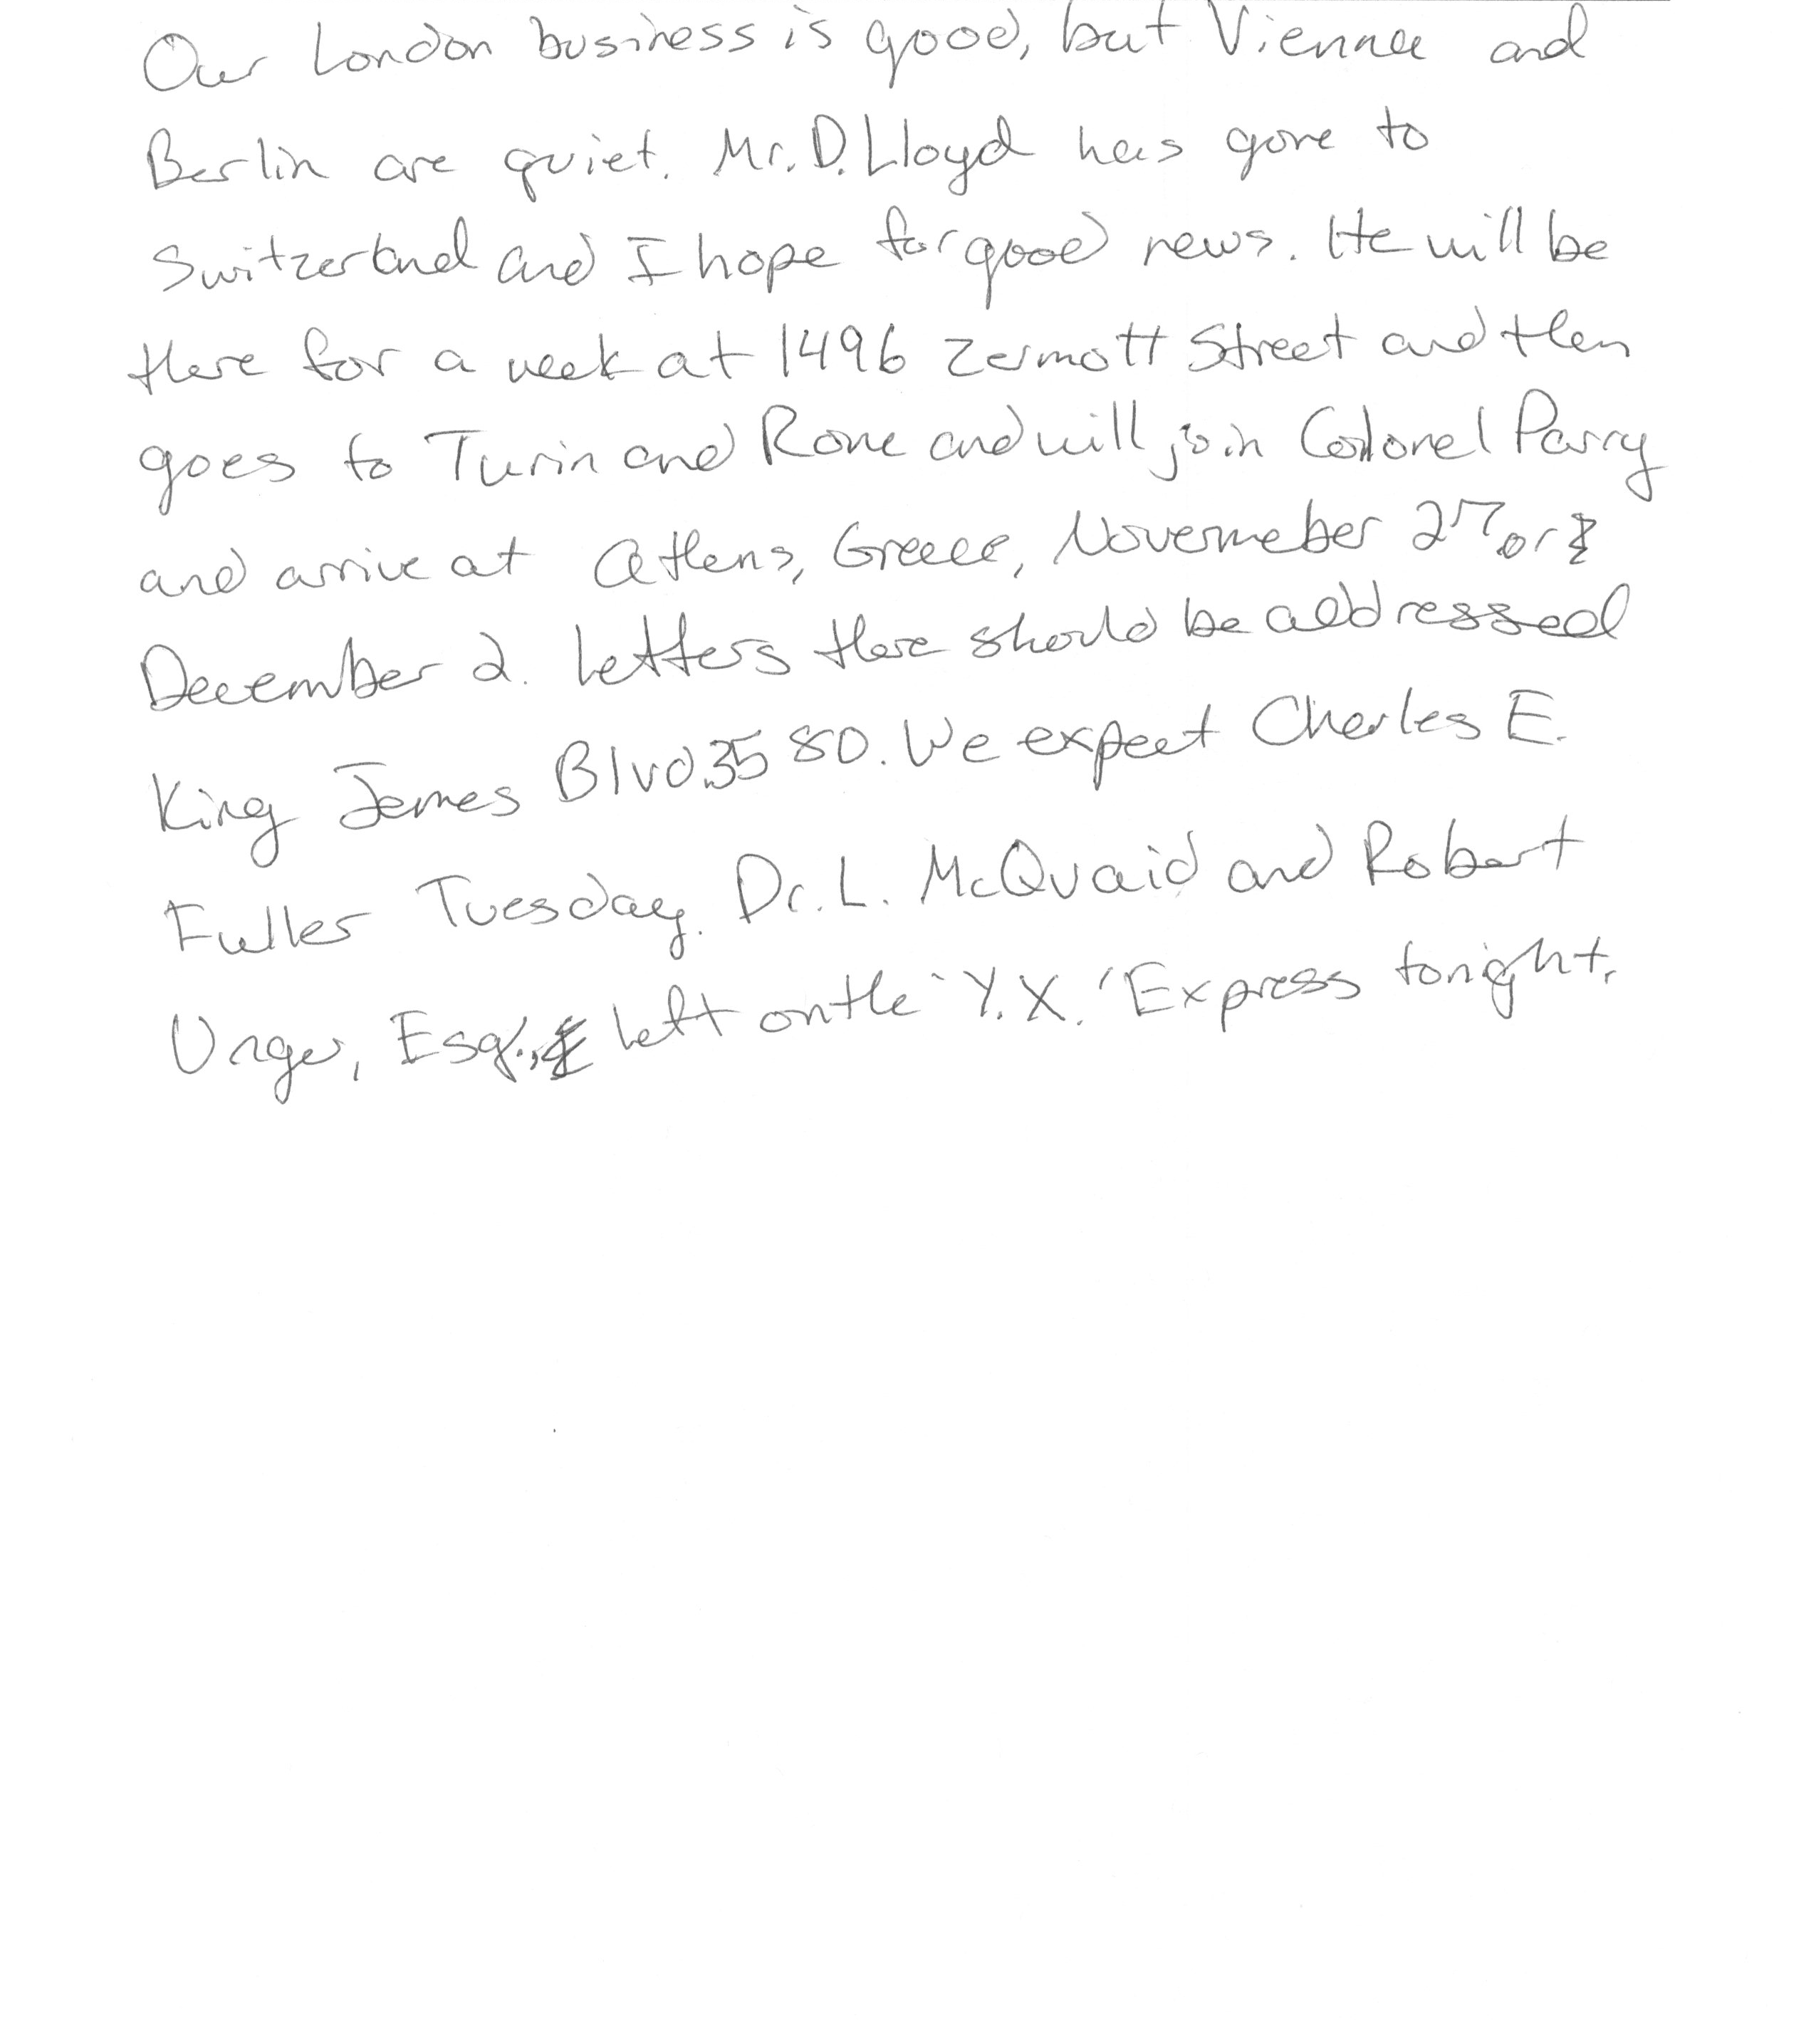 Our London business is good, but Vienna and
Berlin are quiet. Mr. D. Lloyd has gone to
Switzerland and I hope for good news. He will be
there for a week at 1496 Zermott Street and then
goes to Turin and Rome and will join Colonel Parry
and arrive at Athens, Greece, Novermeber 27 or
December 2. Letters there should be addressed
King James Blvd 3580. We expect Charles E.
Fuller Tuesday. Dr. L. McQuaid and Robert
Unger, Esq., left on the "Y.X." Express tonight.